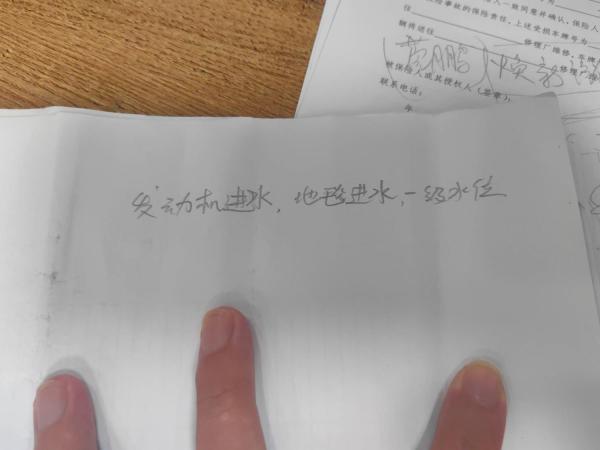 一致同意并确认，保险人
险事故的保险责任，上述受损本牌号为
往
修理厂维修，车牌
辆将送往
修理
被保险人或其授权人（签章）：
联系电话：
年
发动机进水，地毯进水，一级水位